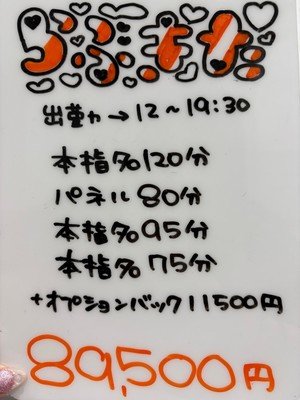 出勤→12〜19:30
本指名120分
パネル80分
本指名95分
本指名75分
+オプションバック11500円
89,500円